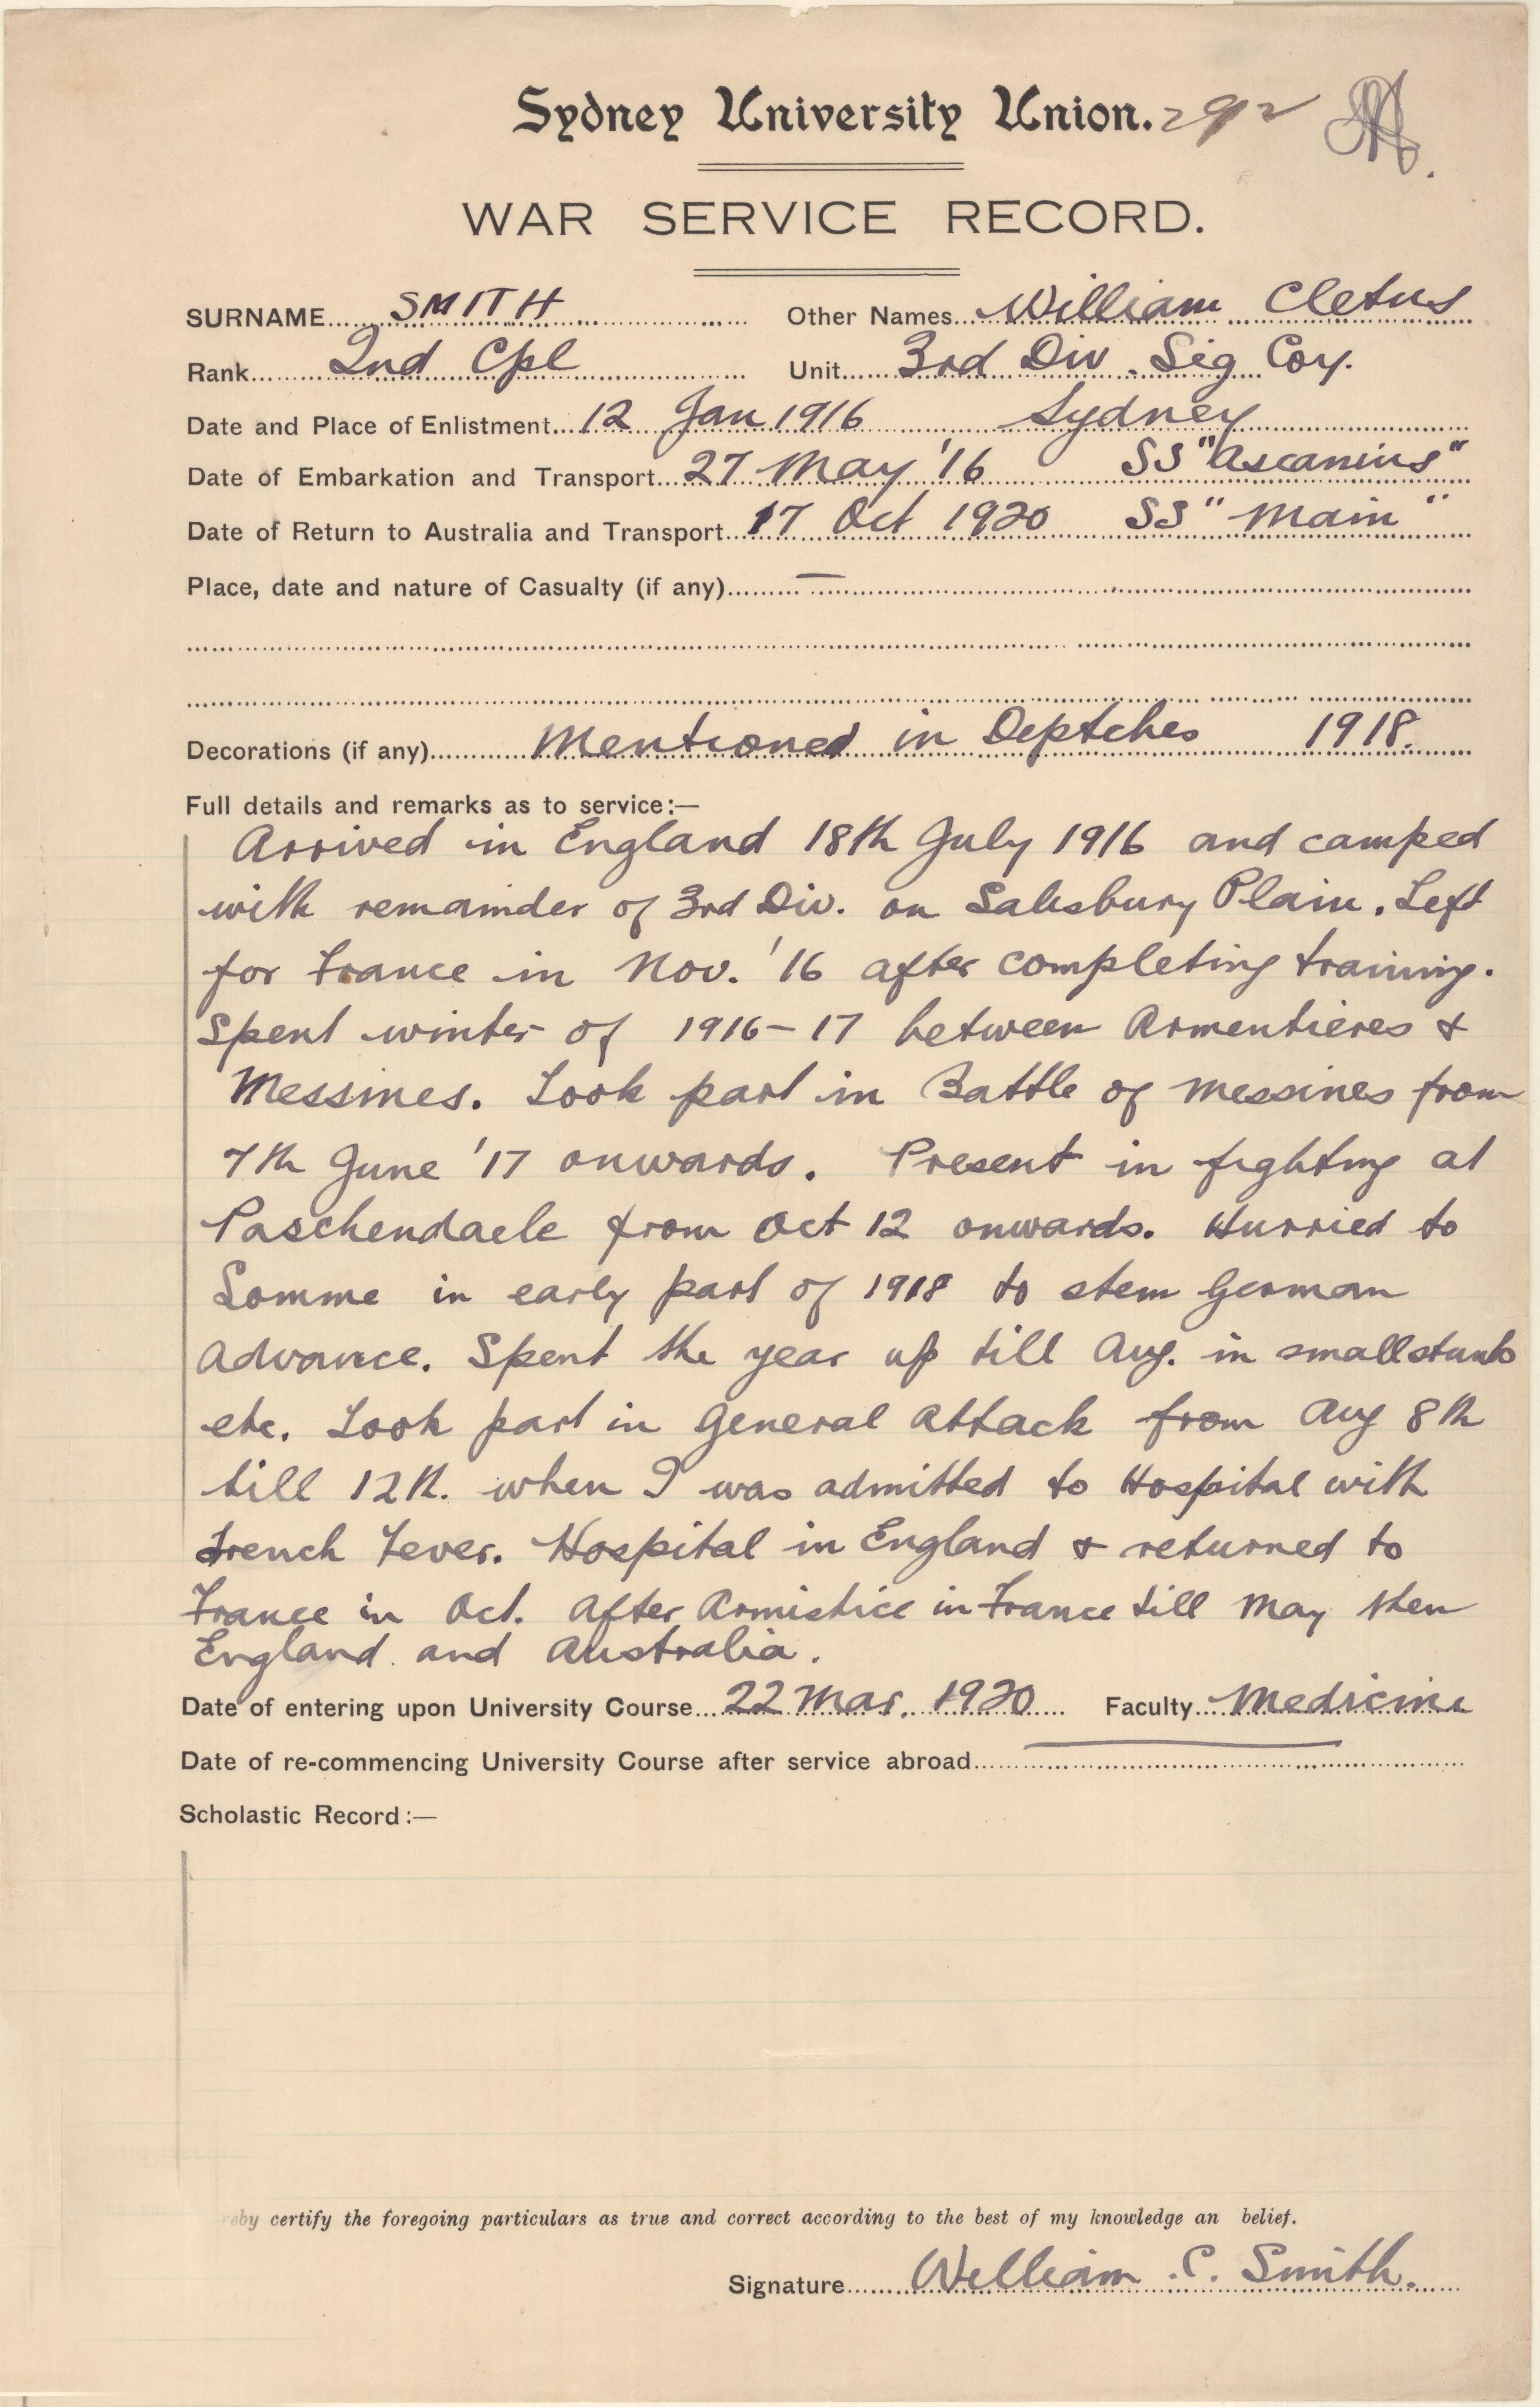 Sydney University Union. 292
WAR SERVICE RECORD.
SURNAME SMITH Other Names William Cletus
Rank 2nd Cpl Unit 3rd Div. Sig Coy.
Date and Place of Enlistment 12 Jan 1916 Sydney
Date of Embarkation and Transport 27 May '16 SS "Ascanius"
Date of Return to Australia and Transport 17 Oct 1920 SS "Main"
Place, date and nature of Casualty (if any) —
Decorations (if any) Mentioned in Deptches 1918.
Full details and remarks as to service:—
Arrived in England 18th July 1916 and camped
with remainder of 3rd Div. on Salisbury Plain. Left
for France in Nov. '16 after completing training.
Spent winter of 1916–17 between Armentieres &
Messines. Took part in Battle of Messines from
7th June '17 onwards. Present in fighting at
Paschendaele from Oct 12 onwards. Hurried to
Somme in early part of 1918 to stem German
Advance. Spent the year up till Aug. in small stunts
etc. Took part in General Attack from Aug 8th
till 12th. when I was admitted to Hospital with
trench Fever. Hospital in England & returned to
France in Oct. After Armistice in France till May then
England and Australia.
Date of entering upon University Course 22 Mar. 1920 Faculty Medicine
Date of re-commencing University Course after service abroad —
Scholastic Record:—
reby certify the foregoing particulars as true and correct according to the best of my knowledge an belief.
Signature William C. Smith.